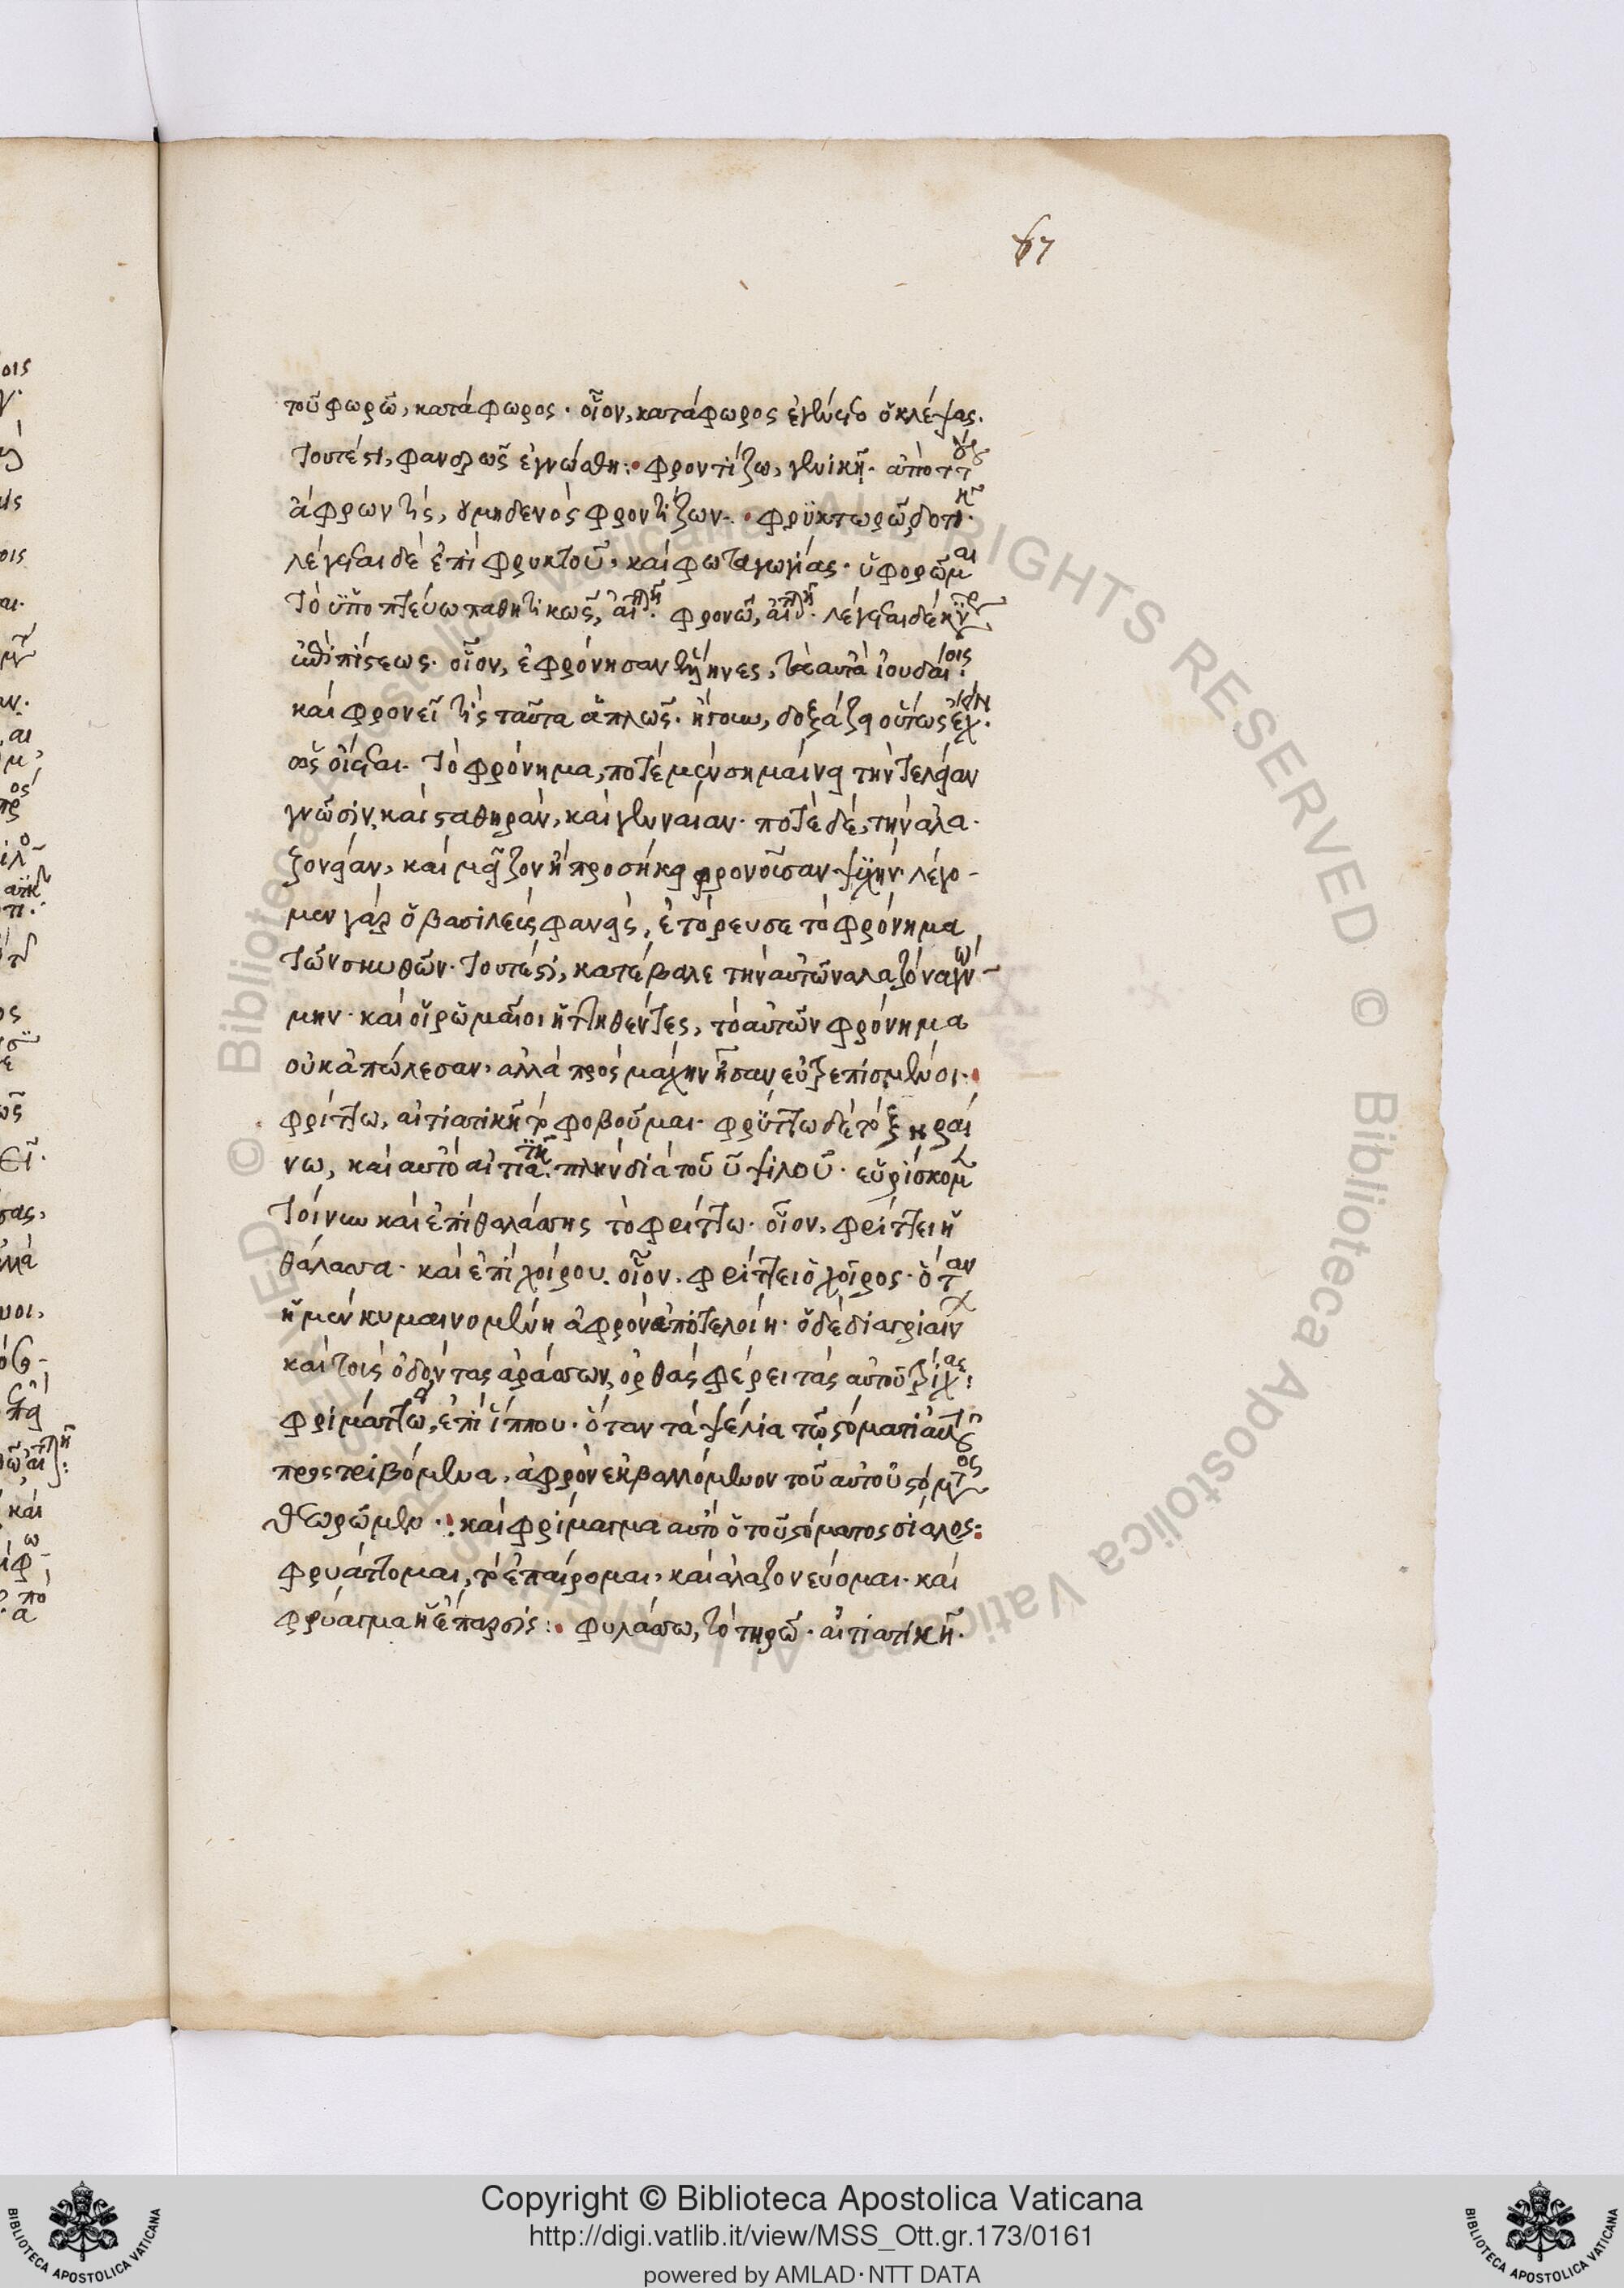 67
τοῦ φωρῶ, κατάφωρος· οἷον, κατάφωρος ἐγένετο ὁ κλέψας.
τουτέστι, φανερῶς ἐγνώσθη: φροντίζω, γενικῇ· ἀπὸ τούτου
ἀφρωντίς, ὁ μηδενὸς φροντίζων· φρυκτωρῶ, δοτικῇ·
λέγεται δὲ ἐπὶ φρυκτοῦ, καὶ φωταγωγίας· ὑφορῶμαι
τὸ ὑποπτεύω παθητικῶς, αἰτιατικῇ· φρονῶ, αἰτιατικῇ· λέγεται δὲ κυρίως
ἐπὶ πίστεως· οἷον, ἐφρόνησαν ἕλληνες, τὰ αὐτὰ ἰουδαίοις·
καὶ φρονεῖ τίς ταῦτα ἁπλῶς· ἤτοι, δοξάζει οὕτως ἔχειν·
ὡς οἴεται· τὸ φρόνημα, ποτὲ μὲν σημαίνει τὴν τελείαν
γνῶσιν, καὶ σταθηράν, καὶ γενναίαν· ποτὲ δὲ, τὴν ἀλα-
ζονείαν, καὶ μεῖζον ἢ προσήκει φρονοῦσαν ψυχήν· λέγο-
μεν γὰρ ὁ βασιλεὺς φανεὶς, ἐτόρευσε τὸ φρόνημα
τῶν σκυθῶν· τουτέστι, κατέβαλε τὴν αὐτῶν αλαζόνα γνώ-
μην· καὶ οἱ ῥωμαῖοι ἡττηθέντες, τὸ αὐτῶν φρόνημα
οὐκ ἀπώλεσαν· αλλὰ πρὸς μάχην ἦσαν εὐτρεπισμένοι·
φρίττω, αἰτιατικῇ τὸ φοβοῦμαι· φρύττω δὲ τὸ ξηραί
νω, καὶ αὐτὸ αἰτιατικῇ· πλὴν διὰ τοῦ ὖ ψιλοῦ· εὑρίσκομεν
τοίνυν καὶ ἐπὶ θαλάσσης τὸ φρίττω· οἷον, φρίττει ἡ
θάλασσα· καὶ ἐπὶ χοίρου· οἷον, φρίττει ὁ χοῖρος· ὅταν
ἡ μὲν κυμαινομένη ἀφρὸν ἀποτελοίη· ὁ δὲ διαγριαίνων
καὶ τοὺς ὀδόντας ἀράσσων, ὀρθὰς φέρει τὰς αὐτοῦ τρίχας:
φριμάττω, ἐπὶ ἵππου· ὅταν τὰ ψέλια τῷ στόματι αὐτοῦ
προστριβόμενα, ἀφρὸν ἐκβαλλόμενον τοῦ αὐτοῦ στόματος
θεωρῶμεν·: καὶ φρίμαγμα αὐτὸ ὁ τοῦ στόματος σίαλος:
φρυάττομαι, τὸ ἐπαίρομαι, καὶ ἀλαζονεύομαι· καὶ
φρύαγμα ἡ ἔπαρσις: φυλάσσω, τὸ τηρῶ· αἰτιατικῇ·
Copyright © Biblioteca Apostolica Vaticana
http://digi.vatlib.it/view/MSS_Ott.gr.173/0161
powered by AMLAD·NTT DATA
BIBLIOTECA APOSTOLICA VATICANA
BIBLIOTECA APOSTOLICA VATICANA